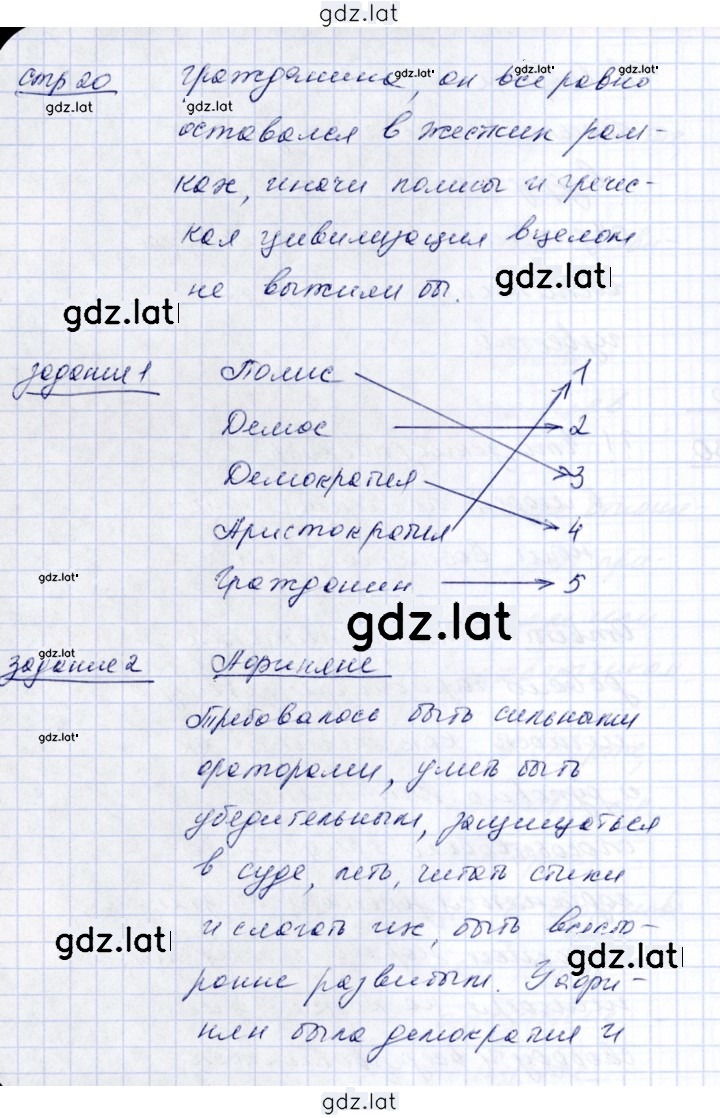 gdz.lat
стр 20 гражданина, он все равно
gdz.lat gdz.lat gdz.lat gdz.lat gdz.lat
оставался в жестких рам-
ках, иначи полисы и гречес-
кая цивилизация вцелом
не выжили бы. gdz.lat
gdz.lat
задание 1 Полис 1
Демос 2
Демократия 3
Аристократия 4
gdz.lat Гражданин 5
gdz.lat
gdz.lat
задание 2 Афиняне
Требовалось быть сильными
gdz.lat
ораторами, уметь быть
убедительным, защищаться
в суде, петь, читать стихи
и слагать их, быть всесто-
gdz.lat
gdz.lat
ронне развитым. У афи-
нян была демократия и
gdz.lat